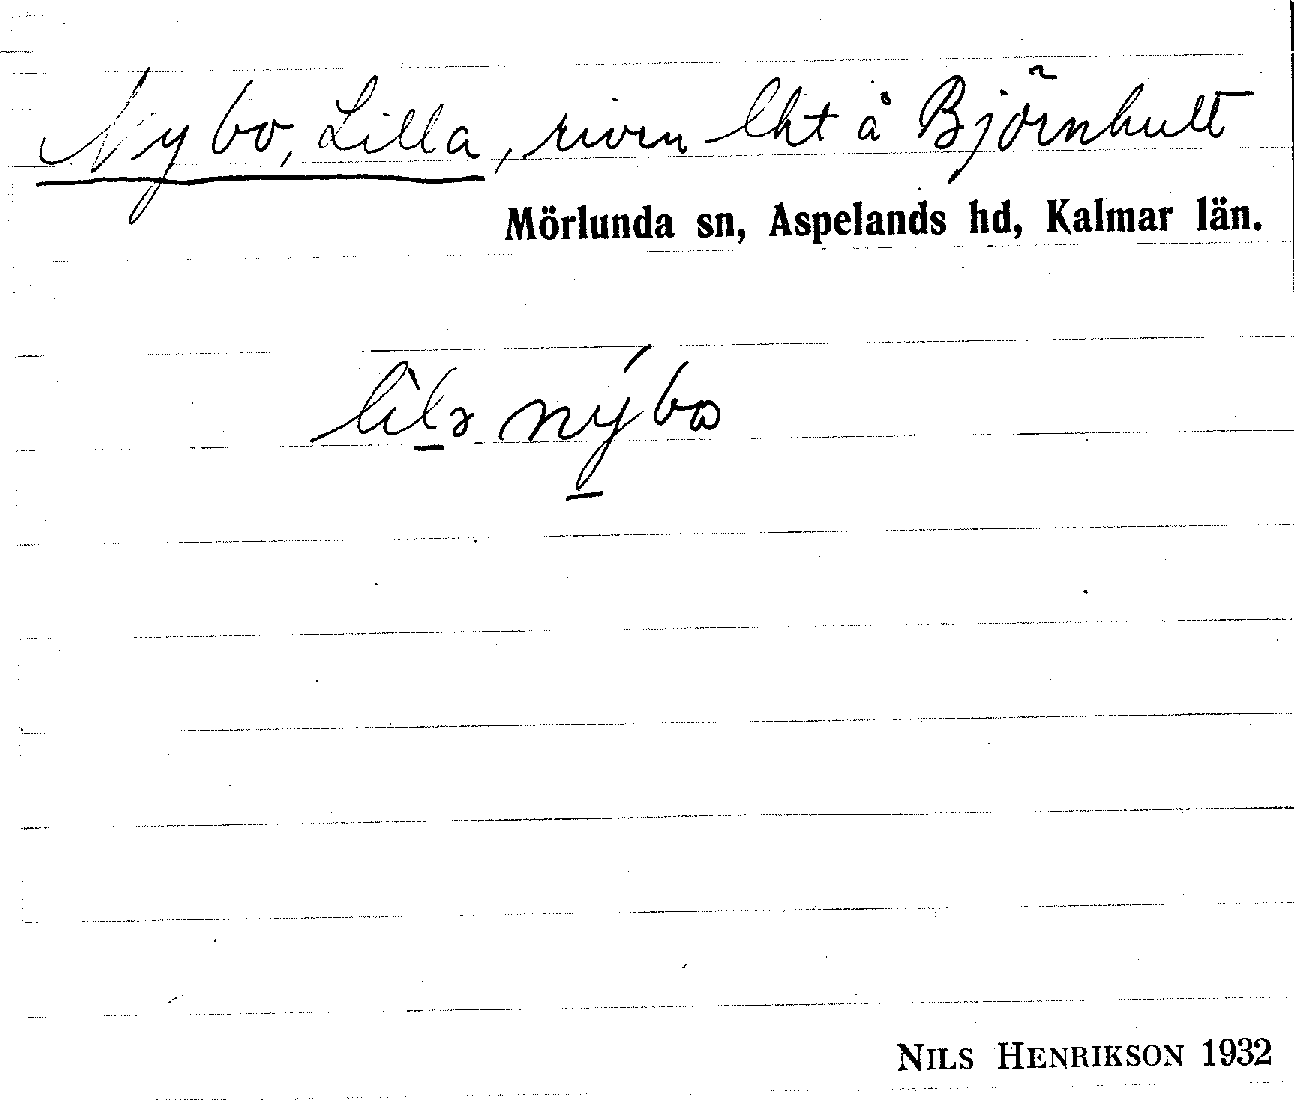 Nybo, Lilla, riven lht å Björnhult
Mörlunda sn, Aspelands hd, Kalmar län.
lila nýbo
NILS HENRIKSON 1932